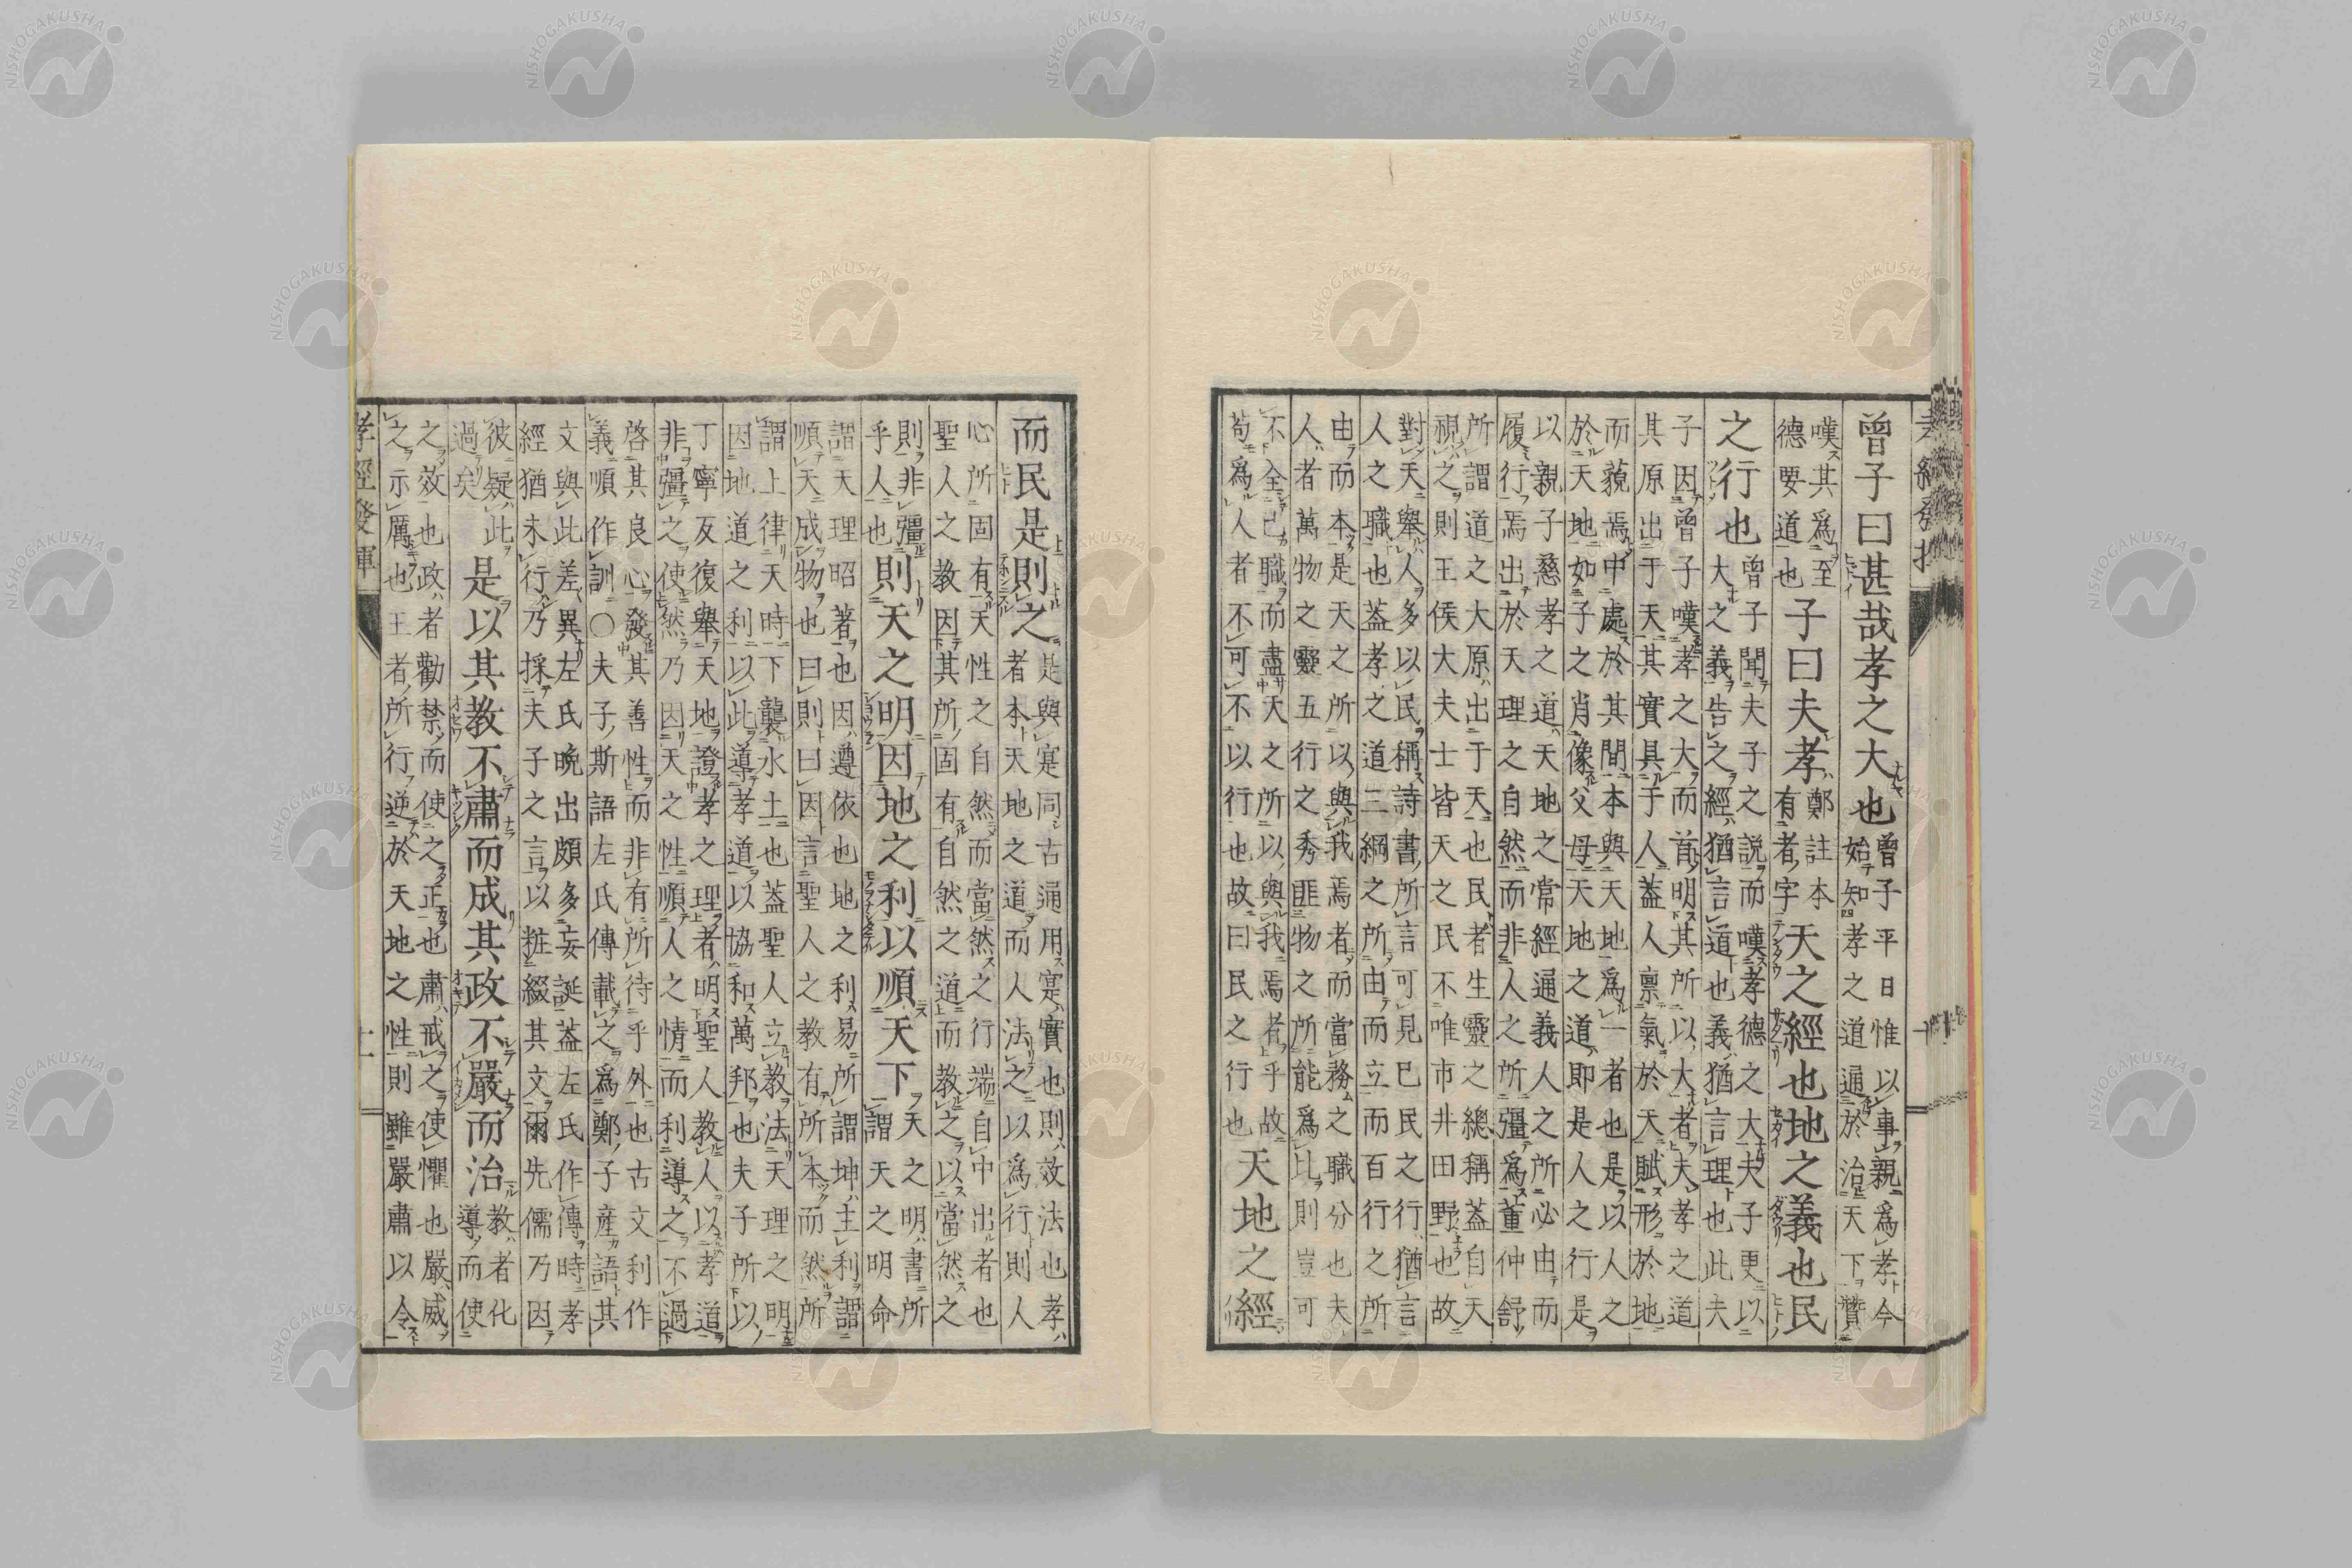 曾子曰甚哉孝之大也
曾子平日惟以事親爲孝今
始知孝之道通於治天下贊
嘆其爲至
德要道也
子曰夫孝
鄭註本
有者字
天之經也地之義也民
之行也
曾子聞夫子之說而嘆孝德之大夫子更以
大之義告之經猶言道也義猶言理也此夫
子因曾子嘆孝之大而首明其所以大者夫孝之道
其原出于天其實具于人蓋人禀氣於天賦形於地
而藐焉中處於其間本與天地爲一者也是以人之
於天地如子之肖像父母天地之道即是人之行是
以親子慈孝之道天地之常經通義人之所必由而
履行焉出於天理之自然而非人之所彊爲董仲舒
所謂道之大原出于天也民者生靈之總稱蓋自天
視之則王侯大夫士皆天之民不唯市井田野也故
對天舉人多以民稱詩書所言可見已民之行猶言
人之職也蓋孝之道三綱之所由而立而百行之所
由而本是天之所以與我焉者而當務之職分也夫
人者萬物之靈五行之秀匪物之所能爲比則豈可
不全己職而盡天之所以與我焉者乎故
苟爲人者不可不以行也故曰民之行也
天地之經
而民是則之
是與寔同古通用寔實也則效法也孝
者本天地之道而人法之以爲行則人
心所固有天性之自然而當然之行端自中出者也
聖人之教因其所固有自然之道而教之以當然之
則非彊
乎人也
則天之明因地之利以順天下
天之明書所
謂天之明命
謂天理昭著也因遵依也地之利易所謂坤主利謂
順天成物也曰則曰因言聖人之教有所本而然所
謂上律天時下襲水土也蓋聖人立教法天理之明
因地道之利以此導孝道以協和萬邦也夫子所以
丁寧反復舉天地證孝之理者明聖人教人以孝道
非彊之使然乃因天之性順人之情而利導之不過
啓其良心發其善性而非有所待乎外也古文利作
義順作訓○夫子斯語左氏傳載之爲鄭子產語其
文與此差異左氏晩出頗多妄誕蓋左氏作傳時孝
經猶未行乃採夫子之言以粧綴其文爾先儒乃因
彼疑此
過矣
是以其教不肅而成其政不嚴而治
教者化
導而使
之效也政者勸禁而使之正也肅戒之使懼也嚴威
之示厲也王者所行逆於天地之性則雖嚴肅以令
孝經發揮
NISHOGAKUSHA